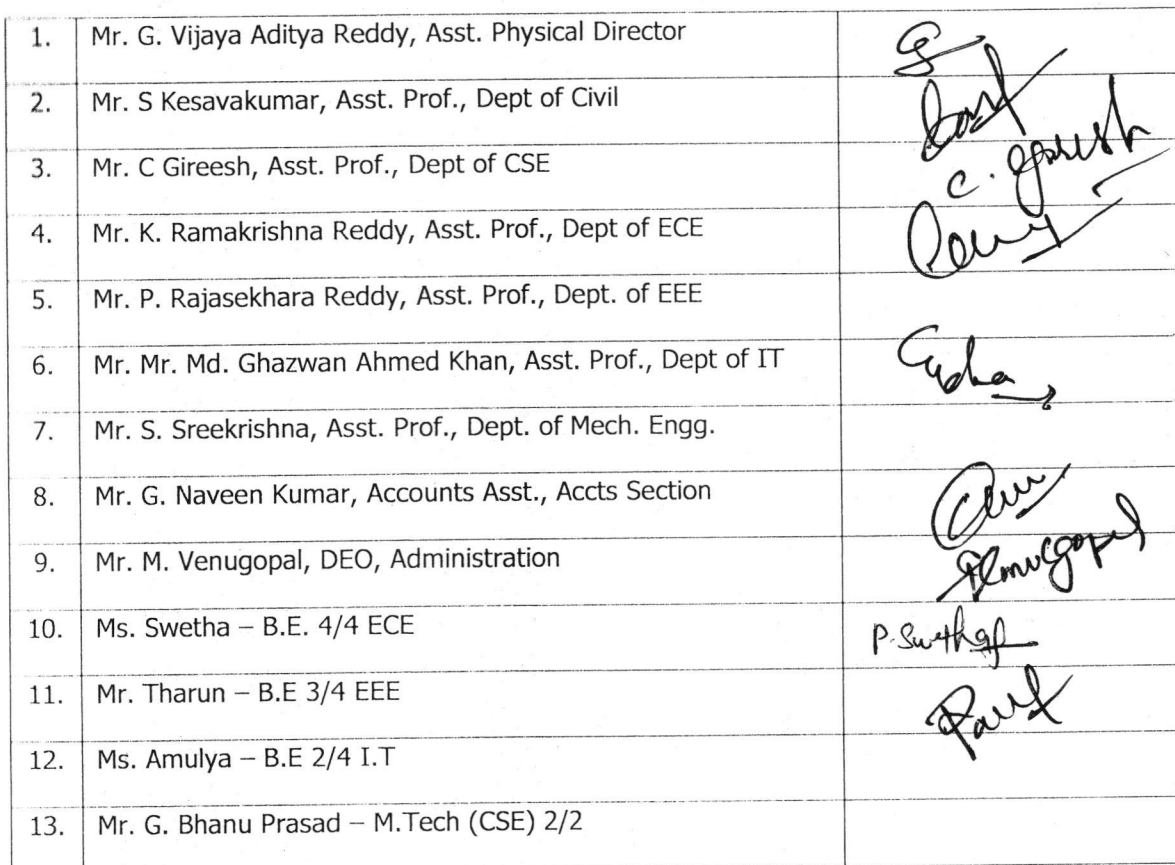 1. Mr. G. Vijaya Aditya Reddy, Asst. Physical Director
2. Mr. S Kesavakumar, Asst. Prof., Dept of Civil
3. Mr. C Gireesh, Asst. Prof., Dept of CSE C. Gireesh
4. Mr. K. Ramakrishna Reddy, Asst. Prof., Dept of ECE
5. Mr. P. Rajasekhara Reddy, Asst. Prof., Dept. of EEE
6. Mr. Mr. Md. Ghazwan Ahmed Khan, Asst. Prof., Dept of IT
7. Mr. S. Sreekrishna, Asst. Prof., Dept. of Mech. Engg.
8. Mr. G. Naveen Kumar, Accounts Asst., Accts Section
9. Mr. M. Venugopal, DEO, Administration
10. Ms. Swetha – B.E. 4/4 ECE P. Swetha
11. Mr. Tharun – B.E 3/4 EEE
12. Ms. Amulya – B.E 2/4 I.T
13. Mr. G. Bhanu Prasad – M.Tech (CSE) 2/2